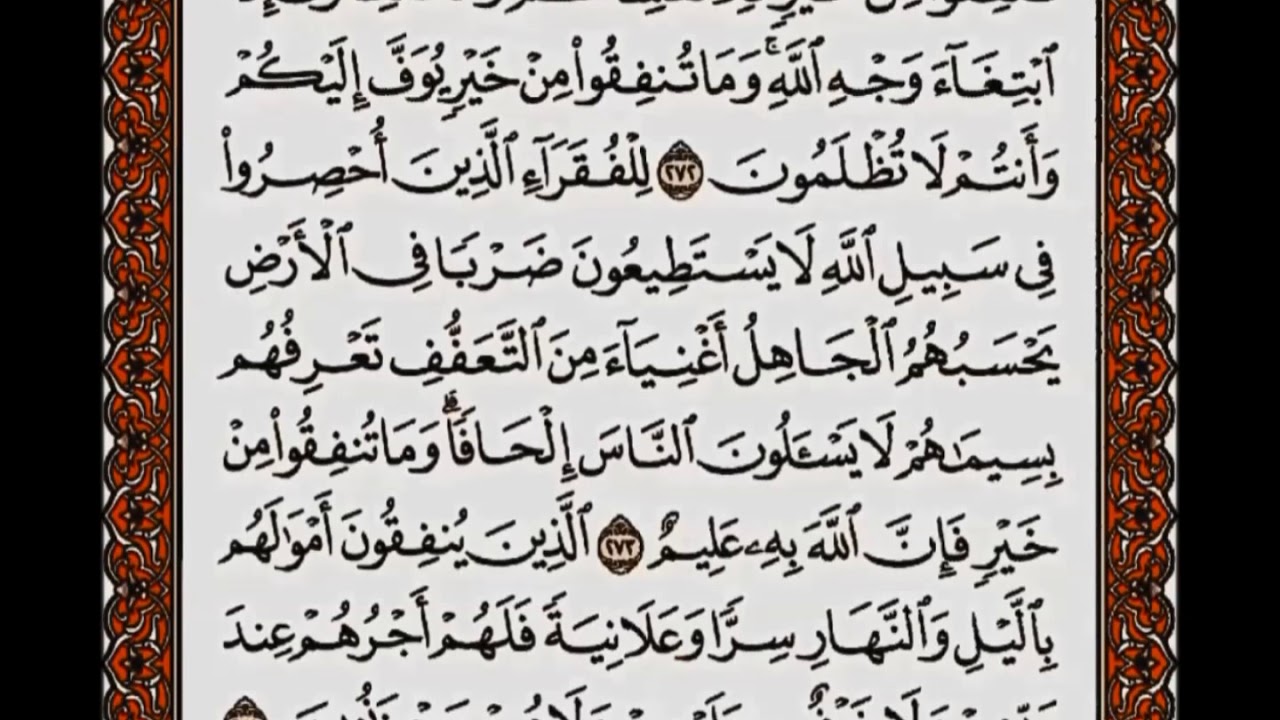 ٱبْتِغَآءَ وَجْهِ ٱللَّهِ ۚ وَمَا تُنفِقُوا۟ مِنْ خَيْرٍ يُوَفَّ إِلَيْكُمْ
وَأَنتُمْ لَا تُظْلَمُونَ ٢٧٢ لِلْفُقَرَآءِ ٱلَّذِينَ أُحْصِرُوا۟
فِى سَبِيلِ ٱللَّهِ لَا يَسْتَطِيعُونَ ضَرْبًا فِى ٱلْأَرْضِ
يَحْسَبُهُمُ ٱلْجَاهِلُ أَغْنِيَآءَ مِنَ ٱلتَّعَفُّفِ تَعْرِفُهُم
بِسِيمَـٰهُمْ لَا يَسْـَٔلُونَ ٱلنَّاسَ إِلْحَافًا ۗ وَمَا تُنفِقُوا۟ مِنْ
خَيْرٍ فَإِنَّ ٱللَّهَ بِهِۦ عَلِيمٌ ٢٧٣ ٱلَّذِينَ يُنفِقُونَ أَمْوَٰلَهُم
بِٱلَّيْلِ وَٱلنَّهَارِ سِرًّا وَعَلَانِيَةً فَلَهُمْ أَجْرُهُمْ عِندَ